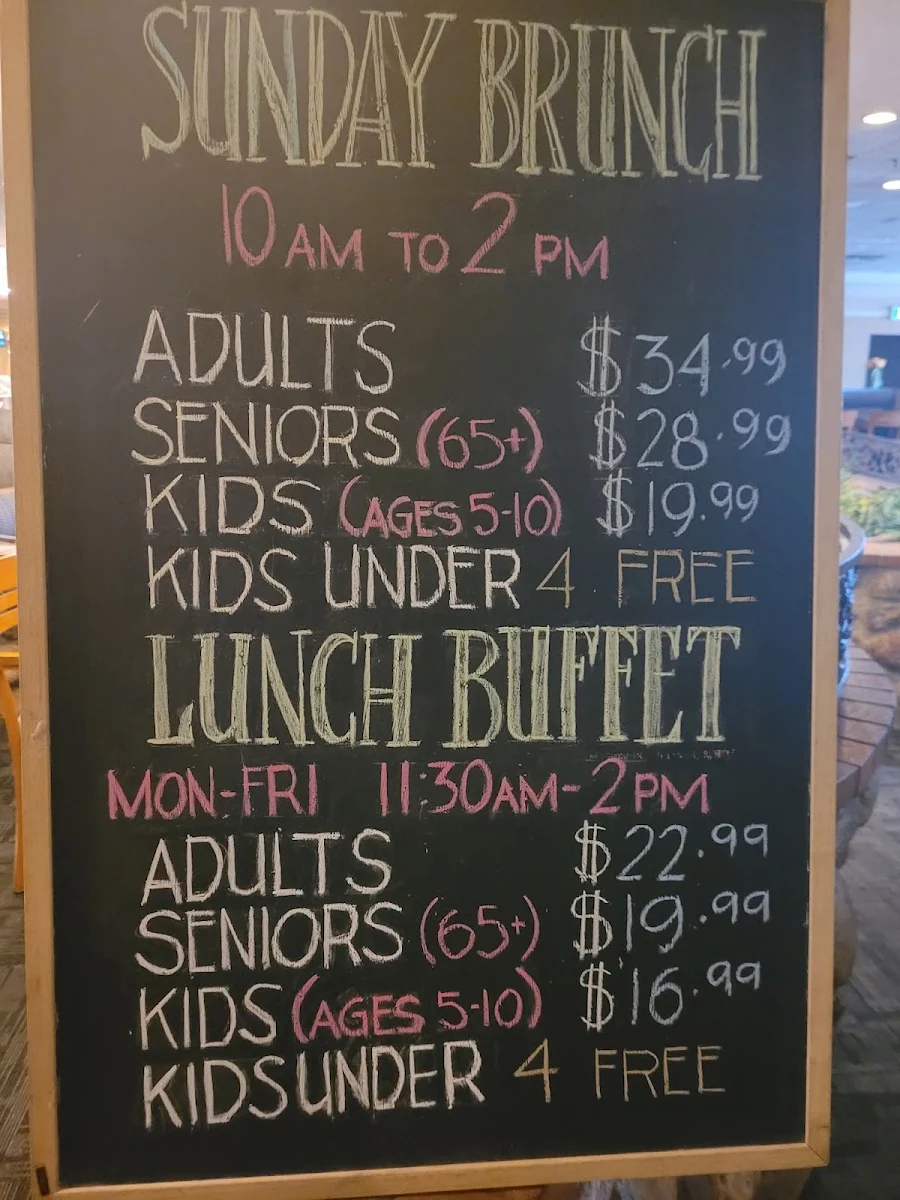 SUNDAY BRUNCH
10 AM TO 2 PM
ADULTS $34.99
SENIORS (65+) $28.99
KIDS (AGES 5-10) $19.99
KIDS UNDER 4 FREE
LUNCH BUFFET
MON-FRI 11:30AM-2PM
ADULTS $22.99
SENIORS (65+) $19.99
KIDS (AGES 5-10) $16.99
KIDS UNDER 4 FREE